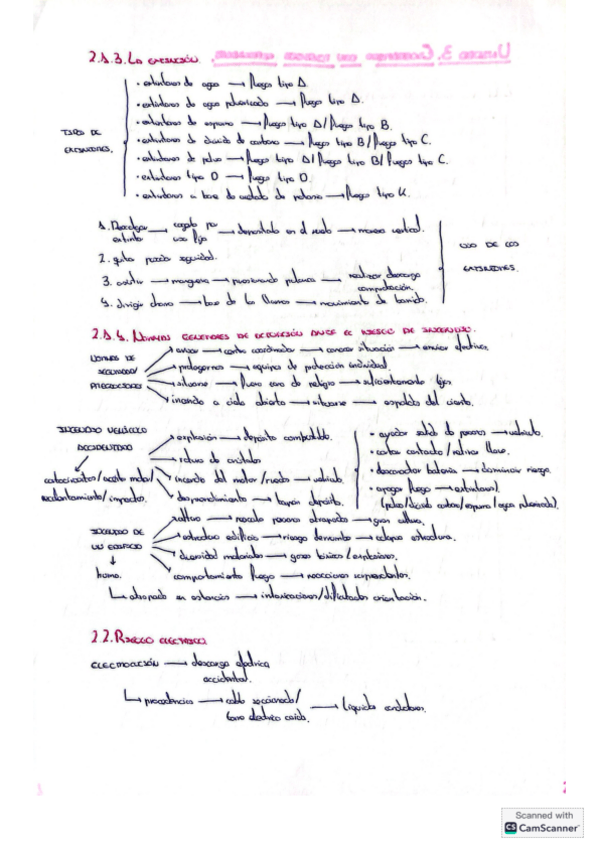 2.1.3. La extinción.
• extintores de agua → fuegos tipo A.
• extintores de agua pulverizada → fuegos tipo A.
• extintores de espuma → fuegos tipo A/fuegos tipo B.
TIPOS DE EXTINTORES.
• extintores de dióxido de carbono → fuegos tipo B/fuegos tipo C.
• extintores de polvo → fuegos tipo A/fuegos tipo B/fuegos tipo C.
• extintores tipo D → fuegos tipo D.
• extintores a base de acetato de potasio → fuegos tipo K.
1. Descolgar extintor → cogerlo por asa fija → depositarlo en el suelo → manera vertical.
USO DE LOS EXTINTORES.
2. quitar pasador seguridad.
3. asir → manguera → presionando palanca → realizar descarga comprobación.
4. dirigir chorro → base de las llamas → movimiento de barrido.
2.1.4. Normas generales de actuación ante el riesgo de incendio.
NORMAS DE SEGURIDAD/ PRECAUCIONES
→ avisar → centro coordinador → conocer situación → enviar efectivos.
→ protegernos → equipos de protección individual.
→ situarse → fuera zona de peligro → suficientemente lejos
→ incendio a cielo abierto → situarse → espaldas del viento.
INCENDIO VEHÍCULO ACCIDENTADO
→ explosión → depósito combustible.
→ rotura de cristales
→ incendio del motor/ruedas → vehículo.
→ desprendimiento → tapón depósito.
cortocircuitos/aceite motor/ recalentamiento/impactos.
• ayudar salida de personas → vehículo.
• cortar contacto/retirar llave.
• desconectar batería → disminuir riesgo.
• apagar fuego → extintores
(polvo/dióxido carbono/espuma/agua pulverizada).
INCENDIO DE UN EDIFICIO
→ rescate personas atrapadas → gran altura.
→ estructura edificio → riesgo derrumbe → colapso estructura.
→ diversidad materiales → gases tóxicos/explosiones.
→ comportamiento fuego → reacciones sorprendentes.
↓
humo.
↳ atrapado en estancias → intoxicaciones/dificultades orientación.
2.2. Riesgo eléctrico
ELECTROCUCIÓN → descarga eléctrica accidental.
↳ procedencia → cable seccionado/ torre eléctrica caída. → líquidos conductores.
Scanned with
CS CamScanner